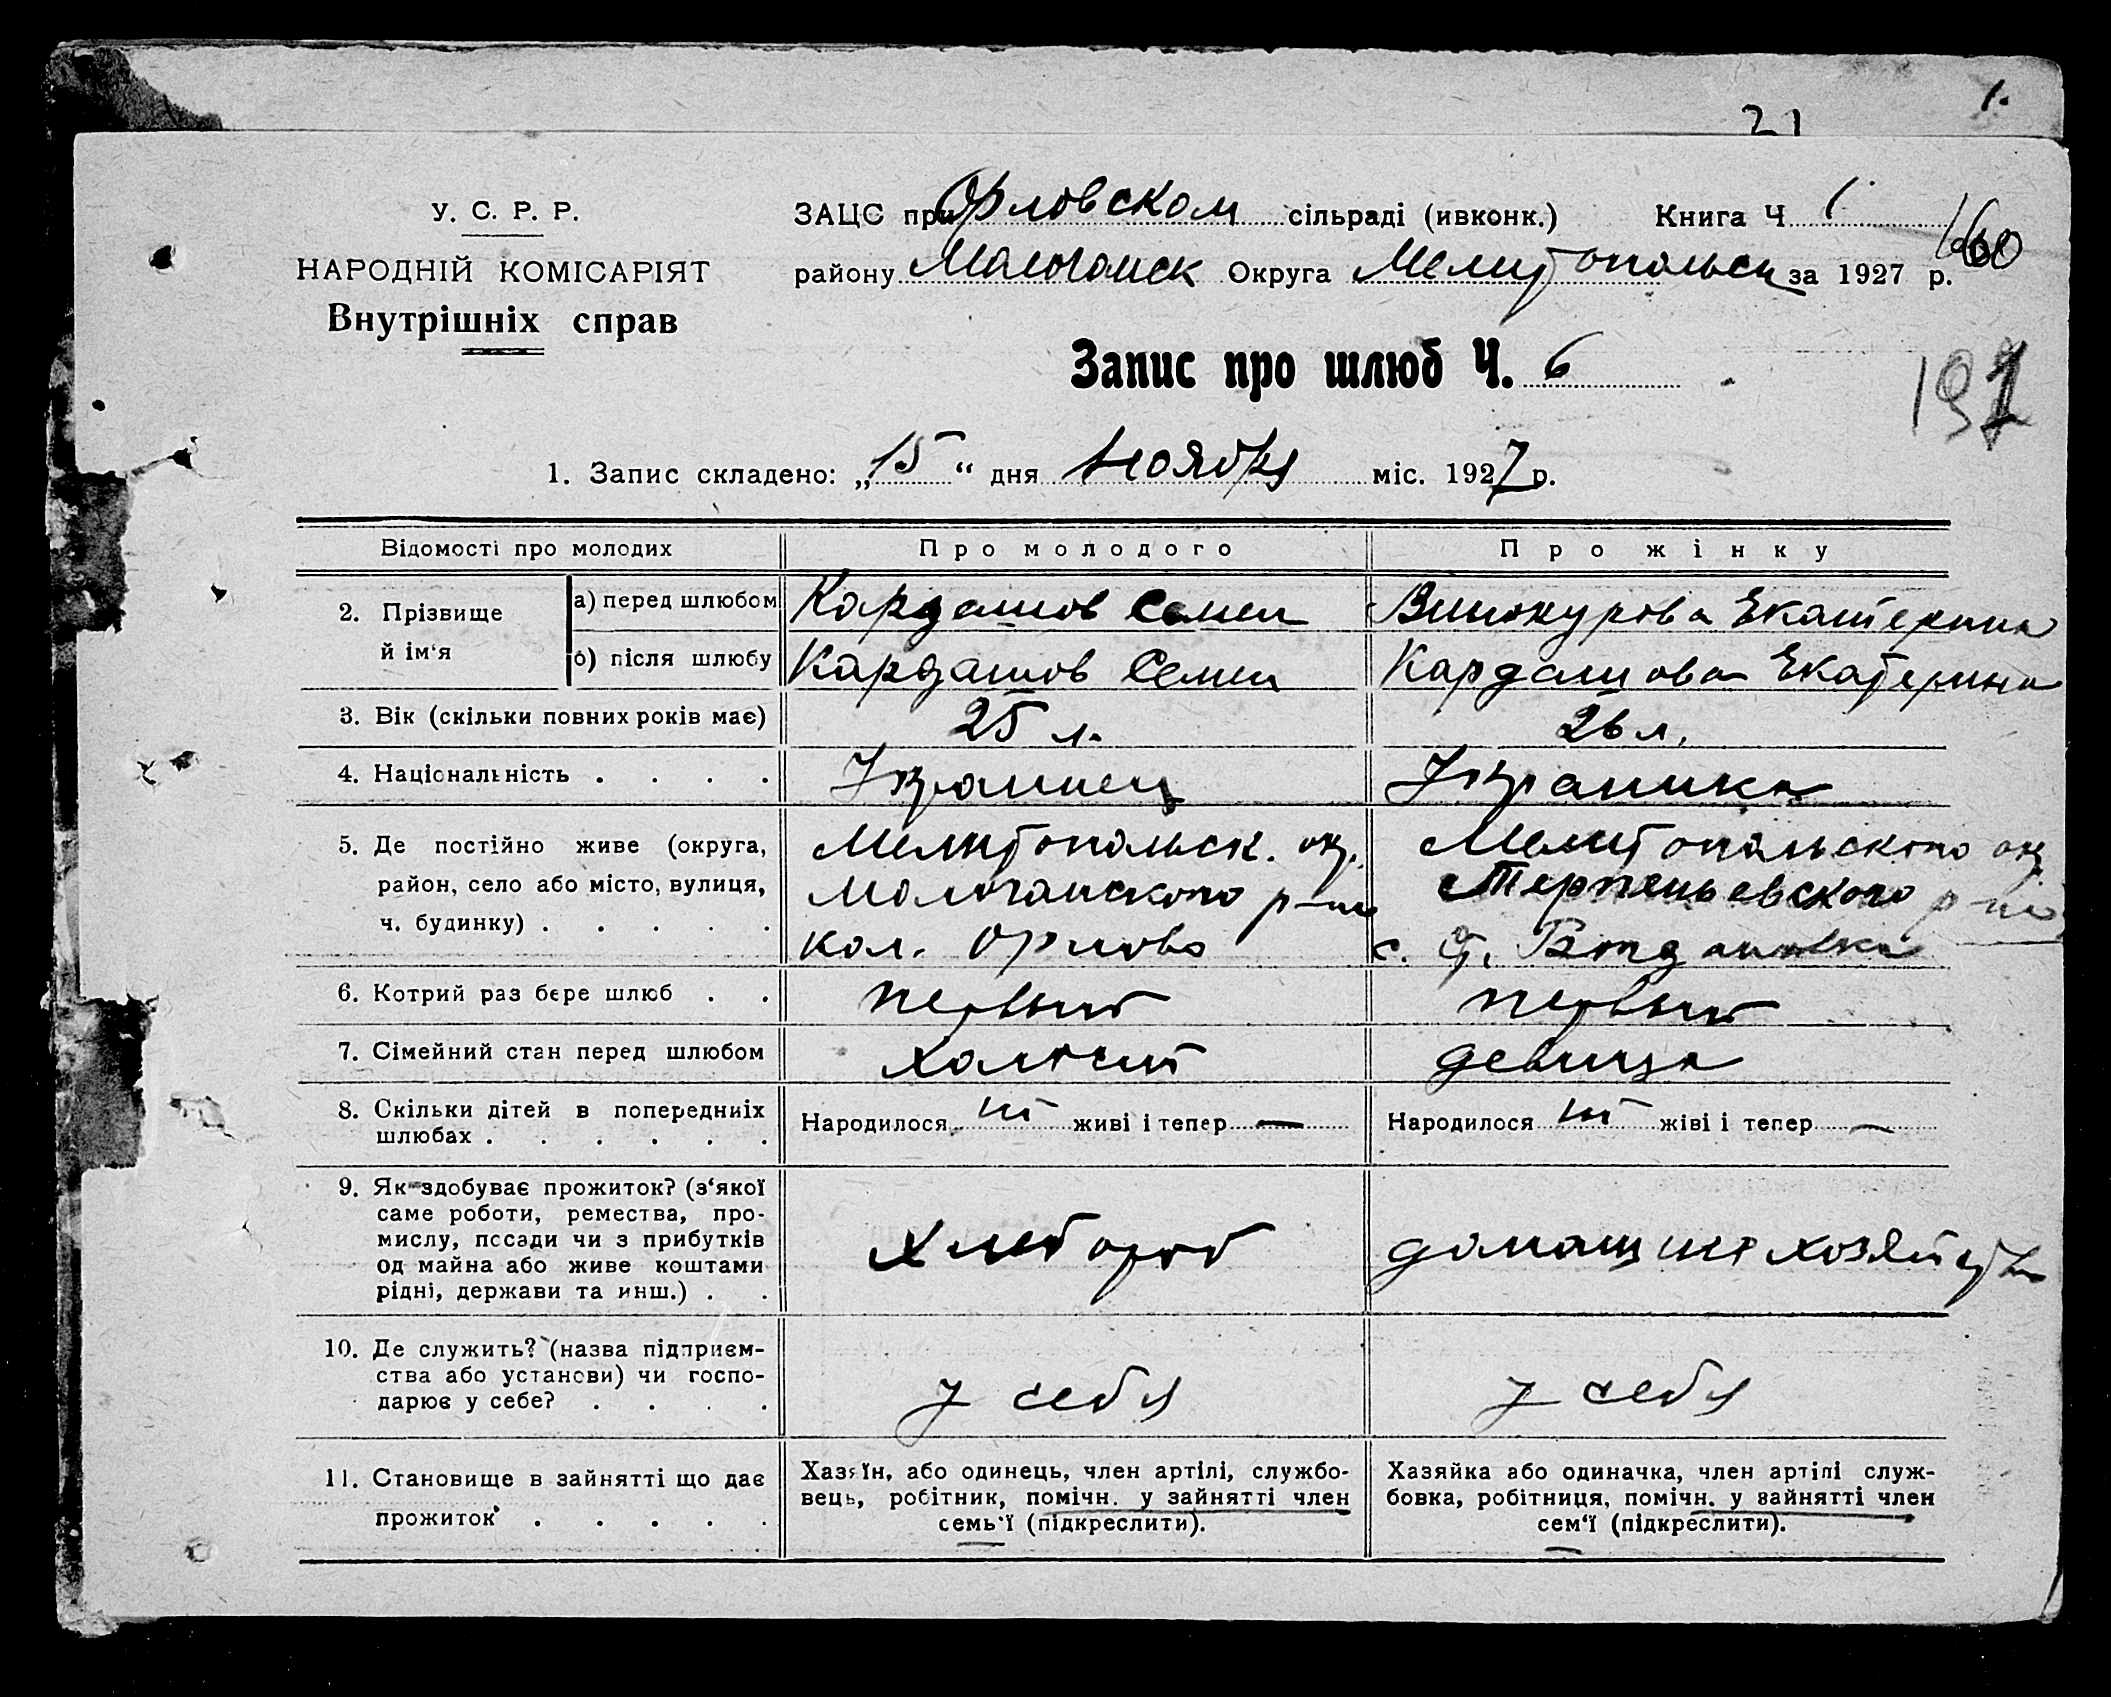 1.
21
У. С. Р. Р.
НАРОДНІЙ КОМІСАРІЯТ
Внутрішніх справ
ЗАЦС при Орловском сільраді (ивконк.) Книга Ч 1
160
району Молочанск Округа Мелитопольск за 1927 р.
Запис про шлюб Ч. 6
197
1. Запис складено: „15“ дня ноября міс. 1927 р.
Відомості про молодих Про молодого Про жінку
2. Прізвище й ім‘я
а) перед шлюбом Кардашов Семен Винокурова Екатерина
б) після шлюбу Кардашов Семен Кардашова Екатерина
3. Вік (скільки повних років має) 25 л. 26 л.
4. Національність . . . . Украинец Украинка
5. Де постійно живе (округа, Мелитопольск. окр. Мелитопольского окр
район, село або місто, вулиця, Молочанского р-на Терпеньевского р-на
ч. будинку) . . . . . кол. Орлово с. Богдановка
6. Котрий раз бере шлюб . . первый первый
7. Сімейний стан перед шлюбом холостий девица
8. Скільки дітей в попередниіх
шлюбах . . . . . .
Народилося нет живі і тепер — Народилося нет жіві і тепер —
9. Як здобуває прожиток? (з‘якої
саме роботи, ремества, про-
мислу, посади чи з прибутків
од майна або живе коштами
рідні, держави та инш.) . .
Хлебороб домашнее хозяйство
10. Де служить? (назва підприєм-
ства або установи) чи госпо-
дарює у себе? . . . .
у себя у себя
11. Становище в зайнятті що дає
прожиток . . . . .
Хазяїн, або одинець, член артілі, службо-
вець, робітник, помічн. у зайнятті член
семь‘ї (підкреслити).
Хазяйка або одиначка, член артілі служ-
бовка, робітниця, помічн. у зайнятті член
сем‘ї (підкреслити).